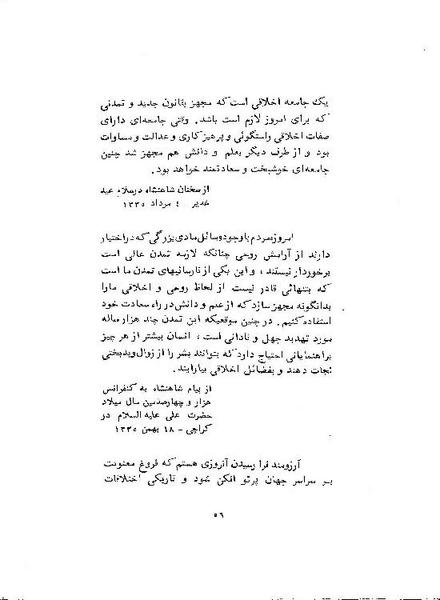 یک جامعه اخلاقی است که مجهز بقانون جدید و تمدنی
که برای امروز لازم است باشد. وقتی جامعه‌ای دارای
صفات اخلاقی راستگوئی و پرهیزکاری و عدالت و مساوات
بود و از طرف دیگر بعلم و دانش هم مجهز شد چنین
جامعه‌ای خوشبخت و سعادتمند خواهد بود.
از سخنان شاهنشاه در سلام عید
غدیر ٤ مرداد ۱۳۳۵
امروز مردم با وجود وسائل مادی بزرگی که در اختیار
دارند از آرامش روحی چنانکه لازمه تمدن عالی است
برخوردار نیستند، و این یکی از نارسائیهای تمدن ما است
که بتنهائی قادر نیست از لحاظ روحی و اخلاقی ما را
بدانگونه مجهز سازد که از علم و دانش در راه سعادت خود
استفاده کنیم. در چنین موقعیکه این تمدن چند هزار ساله
مورد تهدید جهل و نادانی است، انسان بیشتر از هر چیز
براهنمایانی احتیاج دارد که بتوانند بشر را از زوال و بدبختی
نجات دهند و بفضائل اخلاقی بیارایند.
از پیام شاهنشاه به کنفرانس
هزار و چهارصدمین سال میلاد
حضرت علی علیه السلام در
کراچی - ۱۸ بهمن ۱۳۳۵
آرزومند فرا رسیدن آنروزی هستم که فروغ معنویت
بر سراسر جهان پرتو افکن شود و تاریکی اختلافات
۵۶